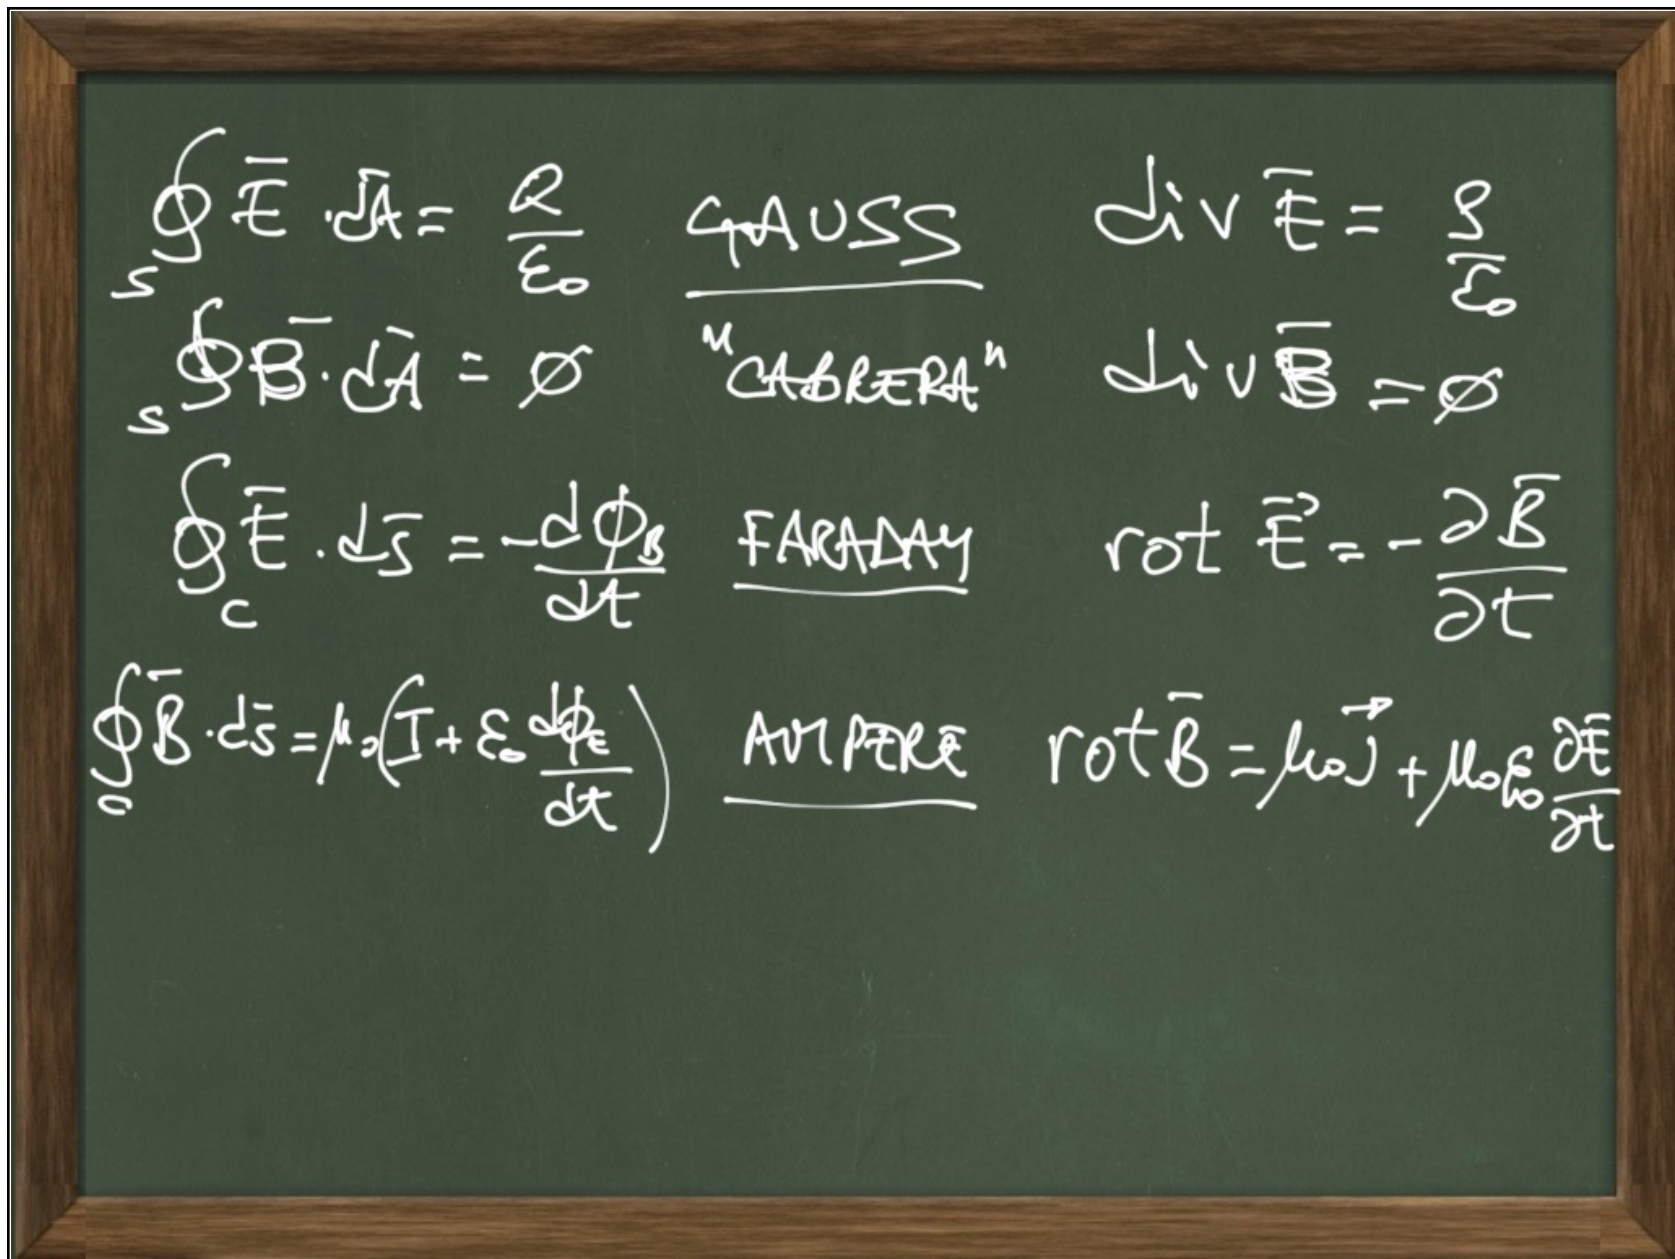 ∮_S Ē · dĀ = Q/ε₀ GAUSS div Ē = ρ/ε₀
∮_S B̄ · dĀ = ∅ "CABRERA" div B̄ = ∅
∮_C Ē · ds̄ = -dϕ_B/dt FARADAY rot E⃗ = -∂B̄/∂t
∮_C B̄ · ds̄ = μ₀(I + ε₀ dϕ_E/dt) AMPERE rot B̄ = μ₀J⃗ + μ₀ε₀ ∂Ē/∂t